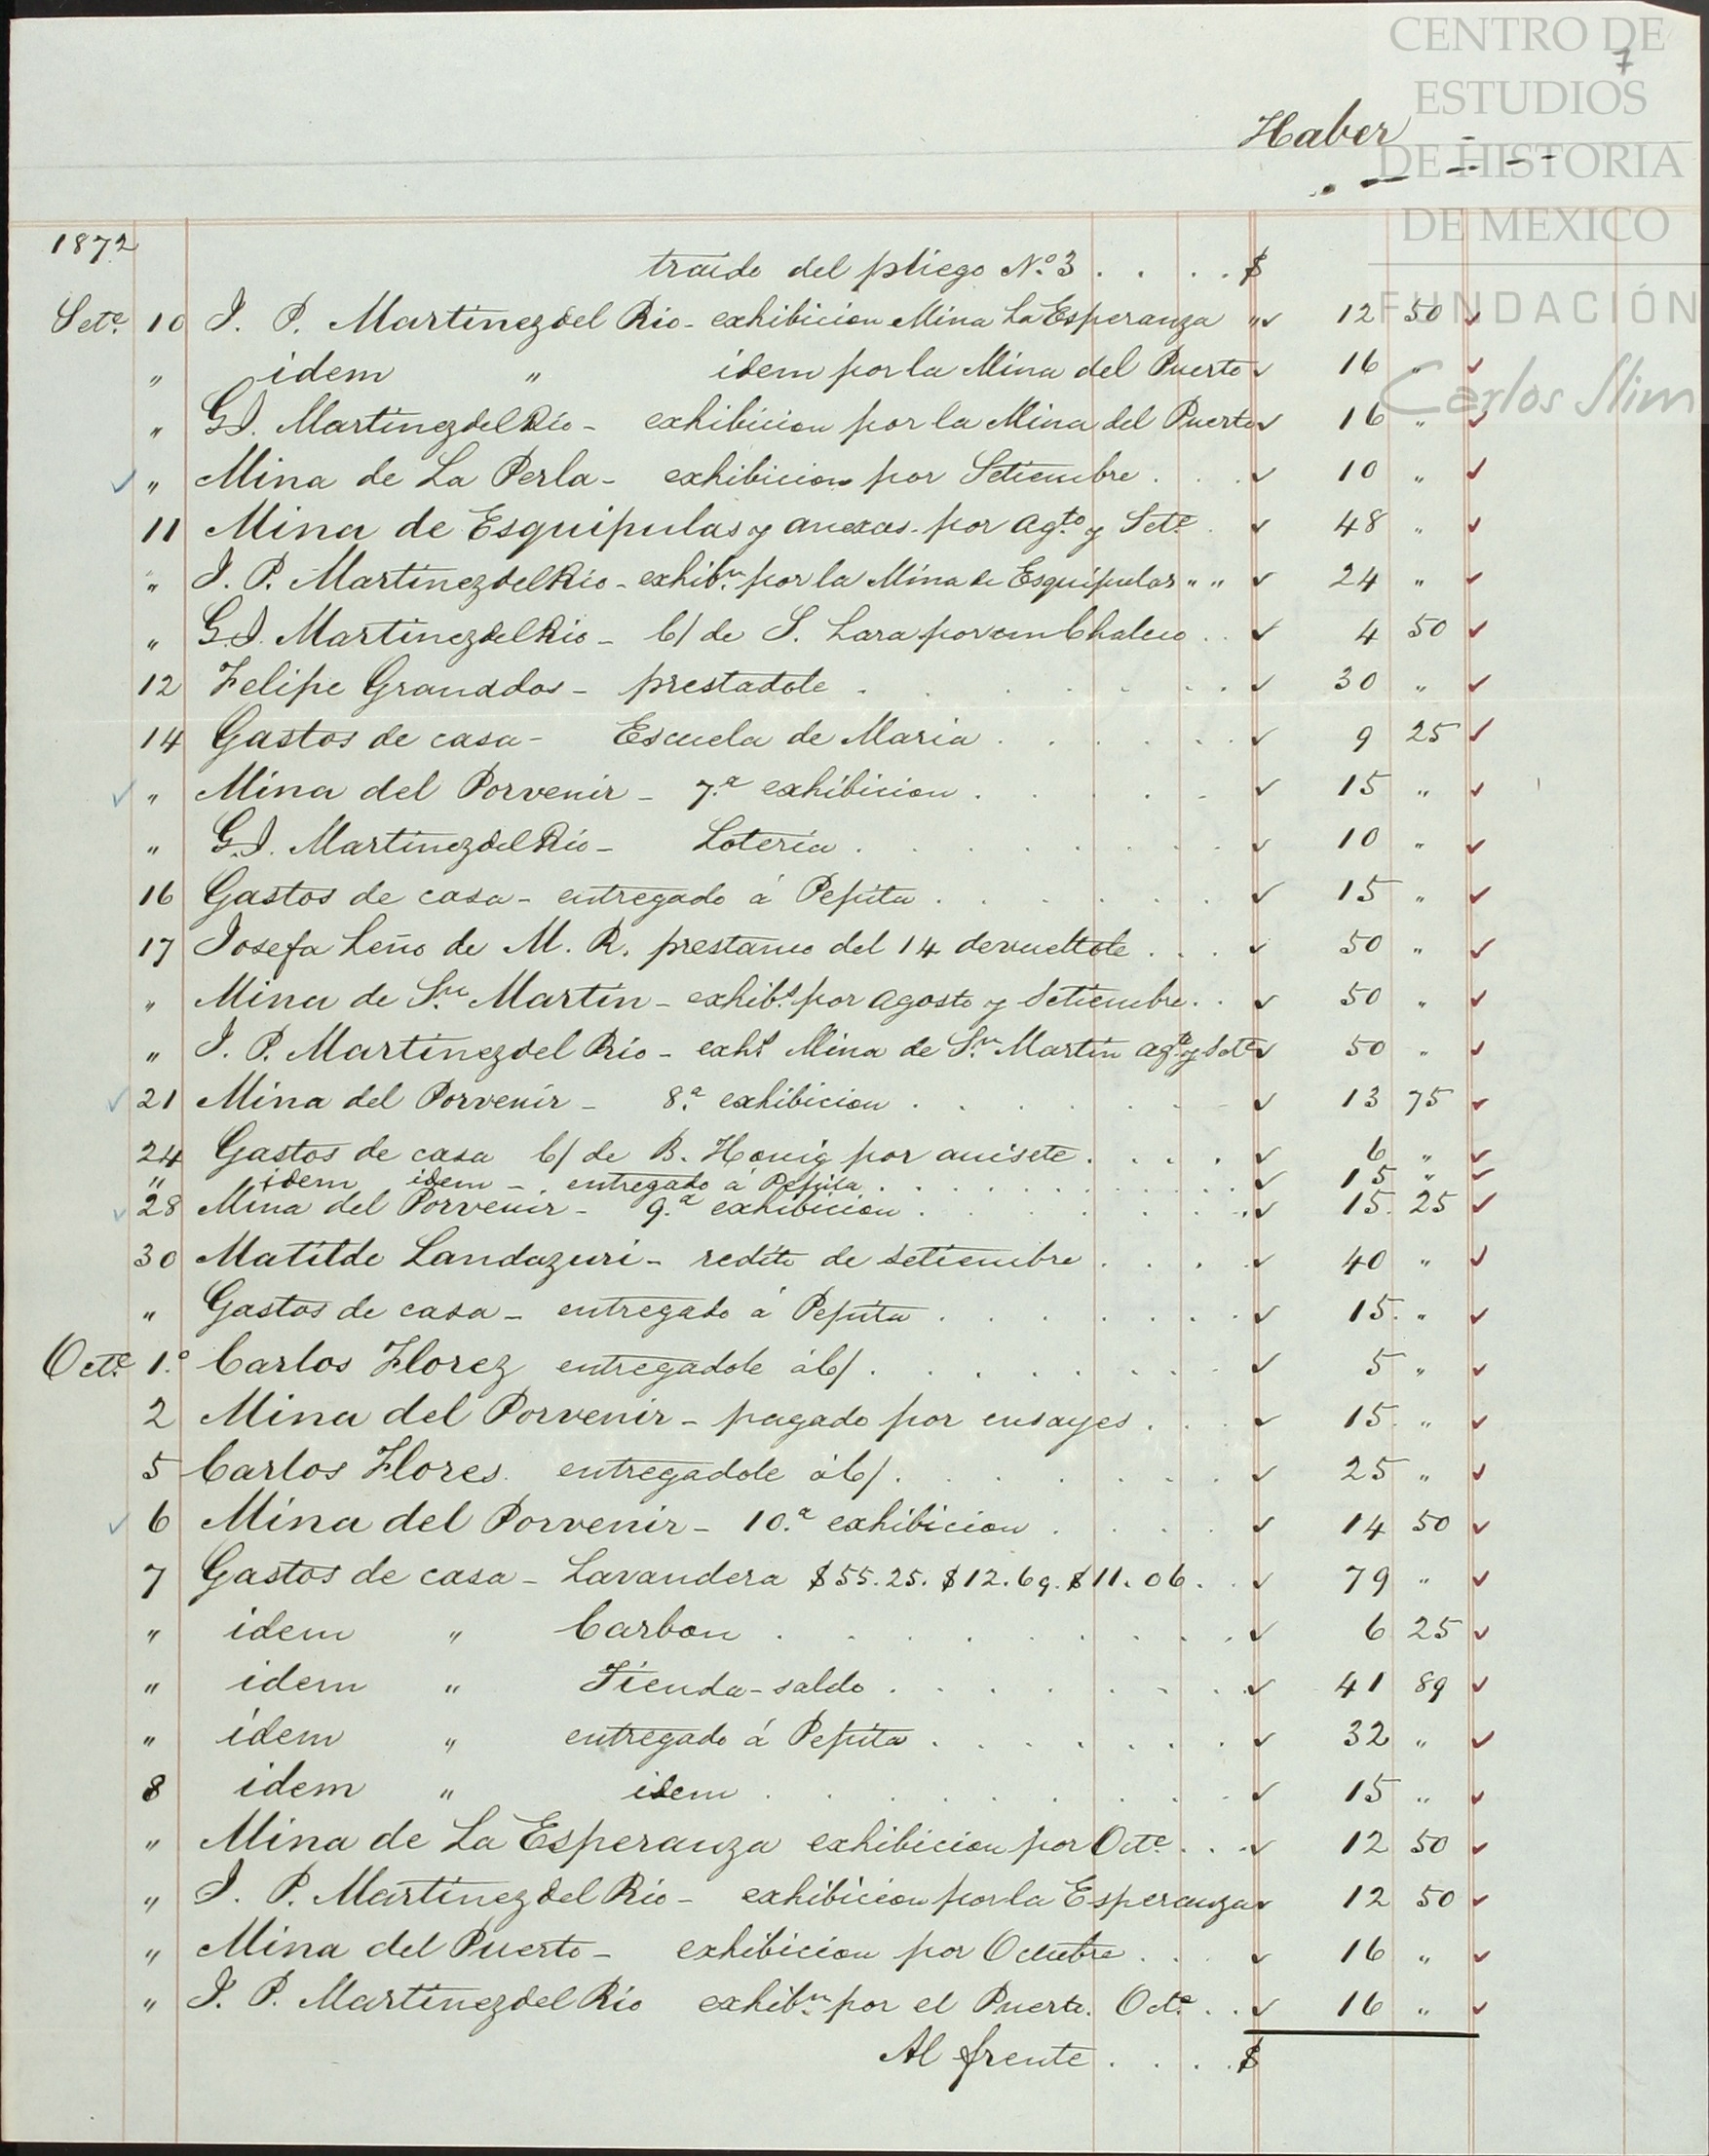 CENTRO DE
ESTUDIOS
DE HISTORIA
DE MEXICO
FUNDACIÓN
Carlos Slim
7
Haber
1872
traido del pliego N.º 3 . . . . $
Set.e 10 J. P. Martinez del Rio - exhibicion Mina La Esperanza " 12 50
" idem " idem por la Mina del Puerto 16 "
" G. J. Martinez del Rio - exhibicion por la Mina del Puerto 16 "
" Mina de La Perla - exhibicion por Setiembre . . . 10 "
11 Mina de Esquipulas y anexas - por Ag.to y Set.e . 48 "
" J. P. Martinez del Rio - exhib.n por la Mina de Esquipulas " " 24 "
" G. J. Martinez del Rio - C/ de S. Lara por un Chaleco . . 4 50
12 Felipe Granddos - prestadole . . . . . . 30 "
14 Gastos de casa - Escuela de Maria . . . . . . 9 25
" Mina del Porvenir - 7.a exhibicion . . . . . 15 "
" G. J. Martinez del Rio - Loteria . . . . . . . 10 "
16 Gastos de casa - entregado á Pepita . . . . . . 15 "
17 Josefa Leño de M. R. prestamo del 14 devueltole . . . 50 "
" Mina de S.n Martin - exhib.s por Agosto y Setiembre . . 50 "
" J. P. Martinez del Rio - exh.s Mina de S.n Martin Ag.to y Set.e 50 "
21 Mina del Porvenir - 8.a exhibicion . . . . . . 13 75
24 Gastos de casa C/ de B. Honig por anisete . . . . 6 "
" idem idem - entregado á Pepita . . . . . . . . 15 "
28 Mina del Porvenir - 9.a exhibicion . . . . . . 15. 25
30 Matilde Landazuri - redito de setiembre . . . . 40 "
" Gastos de casa - entregado á Pepita . . . . . . 15. "
Oct.e 1.º Carlos Florez entregadole á C/ . . . . . . . 5 "
2 Mina del Porvenir - pagado por ensayes . . . 15. "
5 Carlos Flores. entregadole á C/ . . . . . . . 25 "
6 Mina del Porvenir - 10.a exhibicion . . . . 14 50
7 Gastos de casa - Lavandera $55.25. $12.69. $11.06 . . 79 "
" idem " Carbon . . . . . . . . . 6 25
" idem " Tienda - saldo . . . . . . . 41 89
" idem " entregado á Pepita . . . . . . . 32 "
8 idem " idem . . . . . . . . . 15 "
" Mina de La Esperanza exhibicion por Oct.e . . . 12 50
" J. P. Martinez del Rio - exhibicion por la Esperanza 12 50
" Mina del Puerto - exhibicion por Octubre . . . 16 "
" J. P. Martinez del Rio exhib.n por el Puerto. Oct.e . . 16 "
Al frente . . . . $